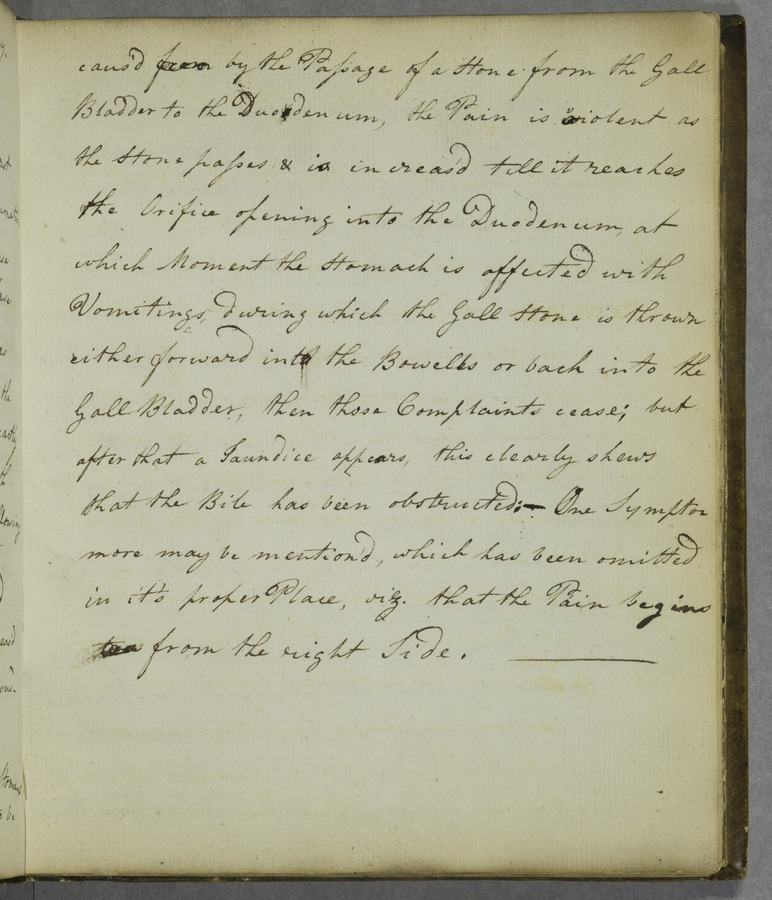 caus'd by the Passage of a Stone from the Gall
Bladder to the Duodenum, the Pain is violent as
the Stone passes & is increas'd till it reaches
the Orifice opening into the Duodenum, at
which Moment the Stomach is affected with
Vomitings, during which the Gall Stone is thrown
either forward into the Bowells or back into the
Gall Bladder, then those Complaints cease; but
after that a Jaundice appears, this clearly shews
that the Bile has been obstructed;— One Symptom
more may be mention'd, which has been omitted
in it's proper Place, viz. that the Pain begins
from the right Side.